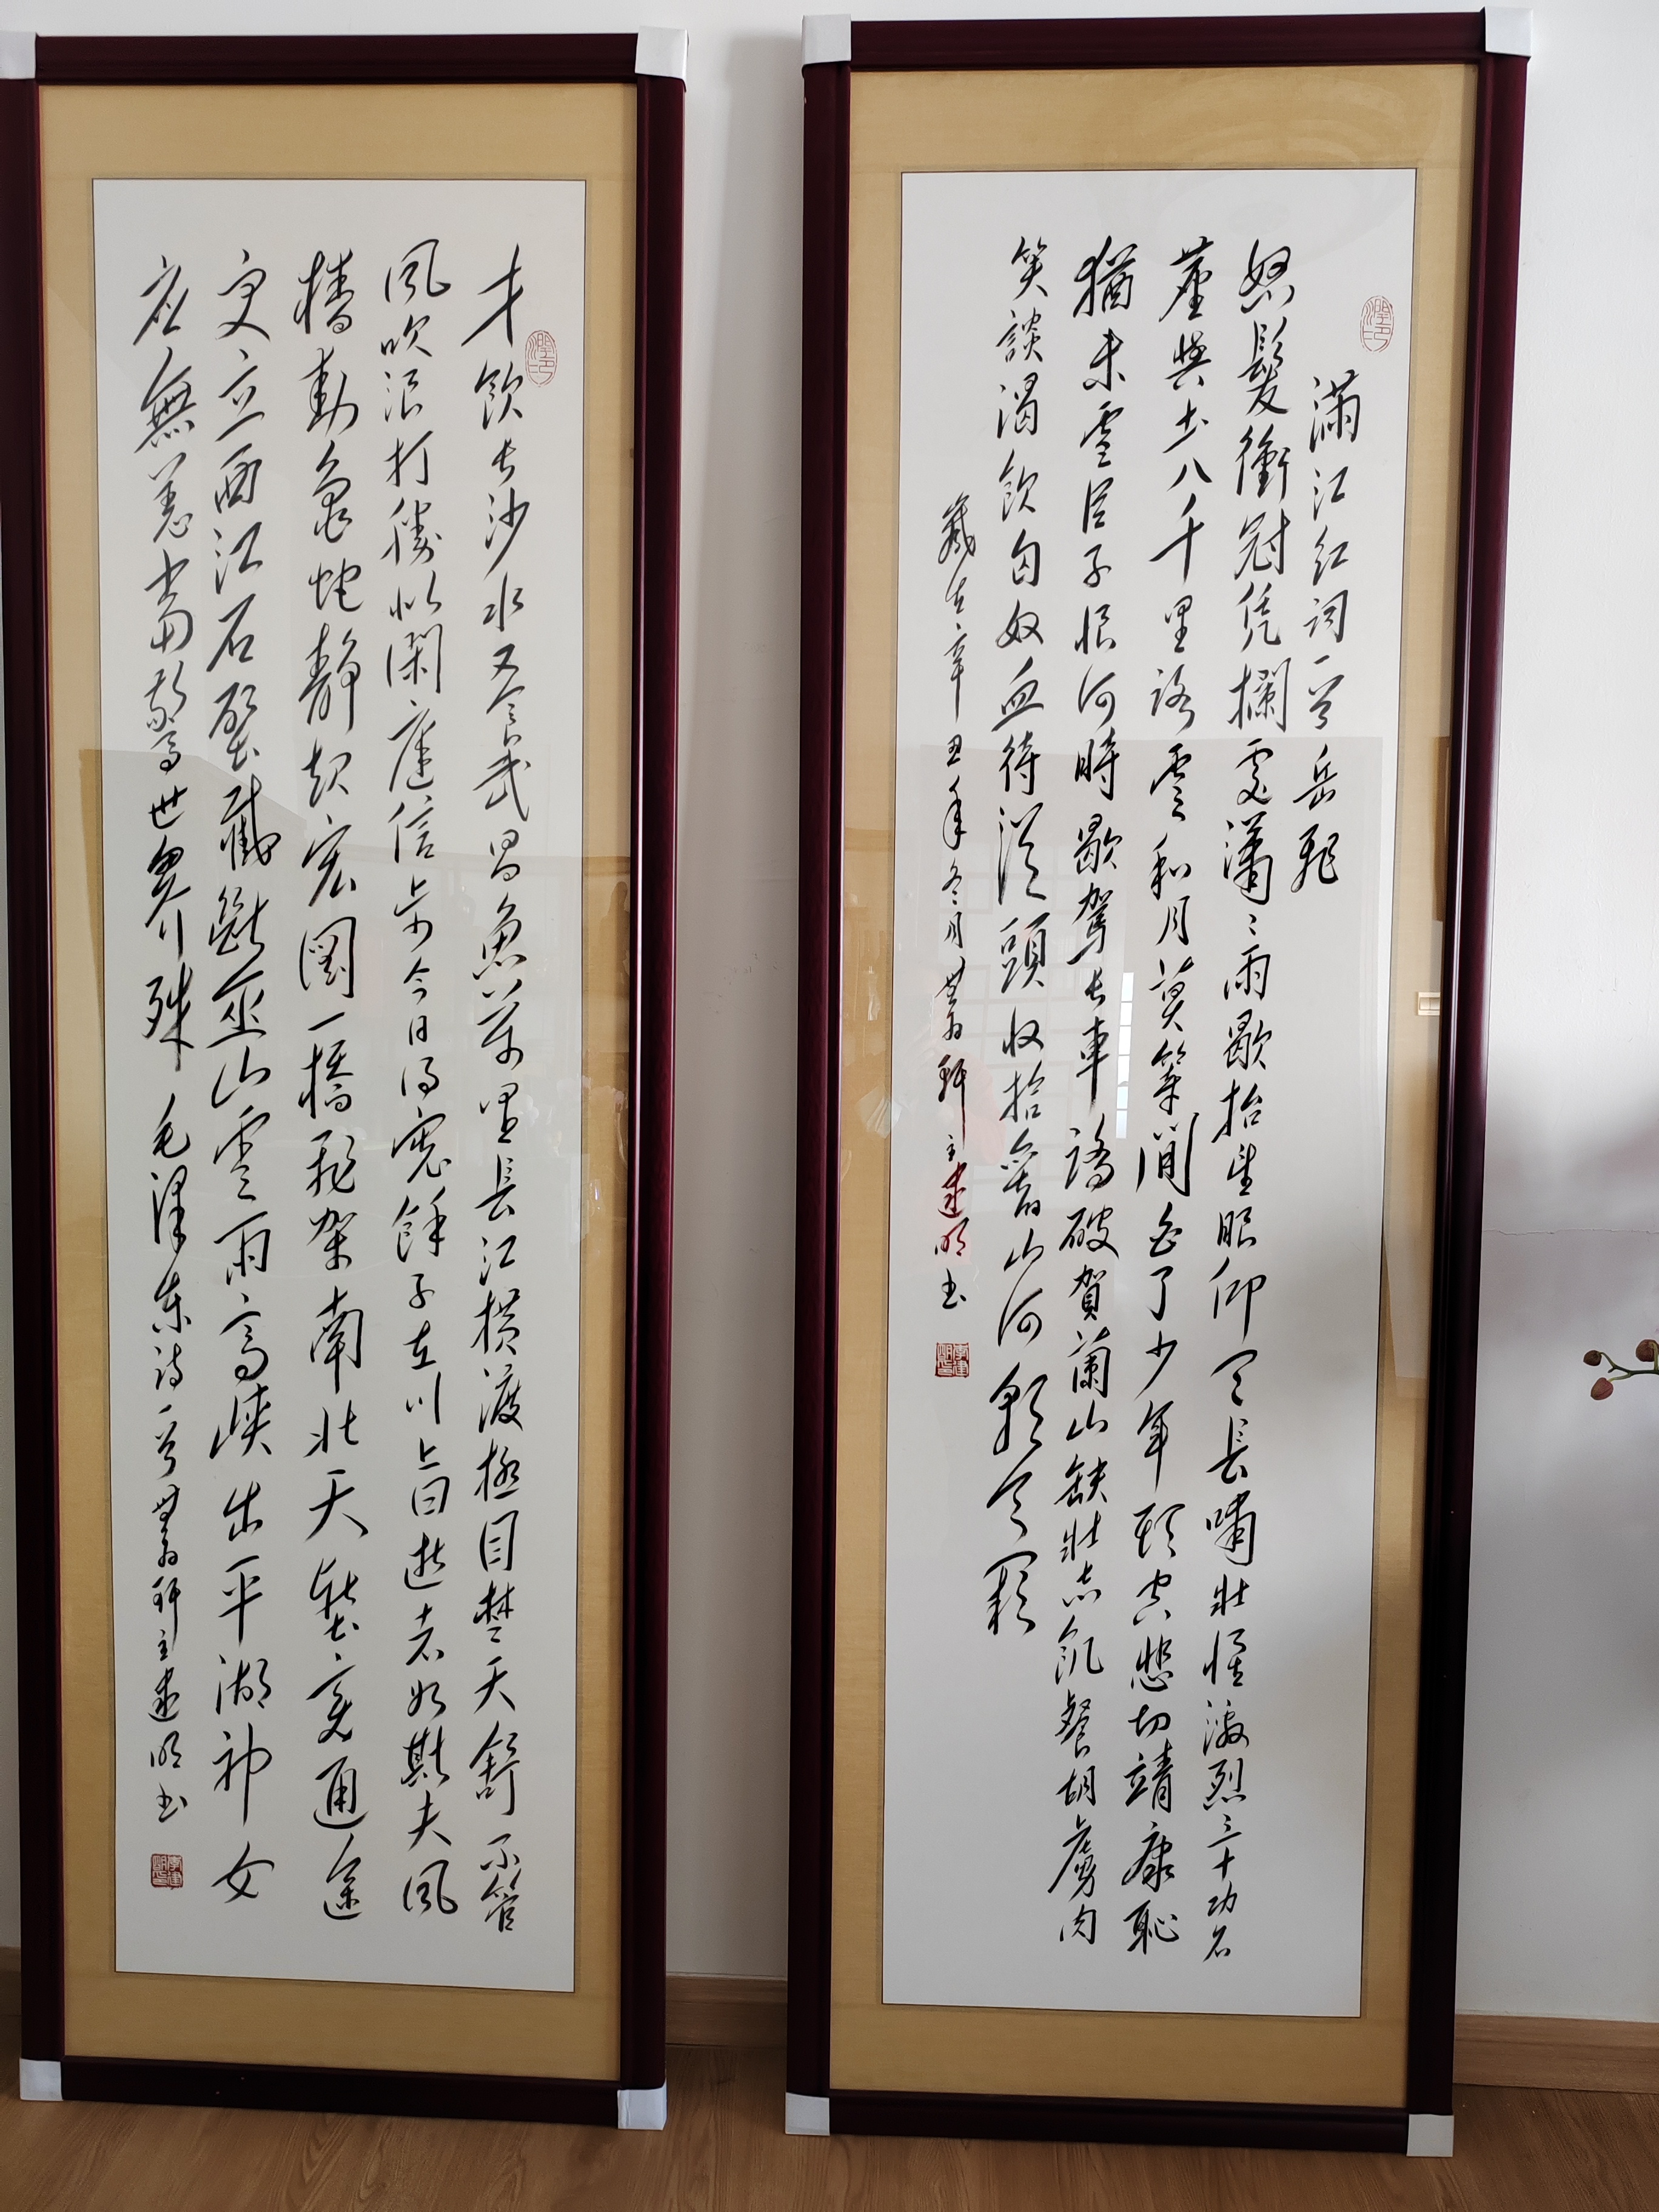 滿江紅詞一首岳飛
怒髮衝冠凭欄處瀟々雨歇抬望眼仰天長嘯壯懷激烈三十功名
塵與土八千里路雲和月莫等閒白了少年頭空悲切靖康恥
猶未雪臣子恨何時歇駕長車踏破賀蘭山缺壯志飢餐胡虜肉
笑談渴飲匈奴血待從頭收拾舊山河朝天闕
歲在辛丑年冬月軒主建明书
李建明印
才飲長沙水又食武昌魚萬里長江橫渡極目楚天舒不管
風吹浪打勝似閑庭信步今日得寬餘子在川上曰逝者如斯夫風
檣動龜蛇靜起宏圖一橋飛架南北天塹變通途
更立西江石壁截斷巫山雲雨高峽出平湖神女
應無恙當驚世界殊 毛澤東詩一首軒主建明书
李建明印